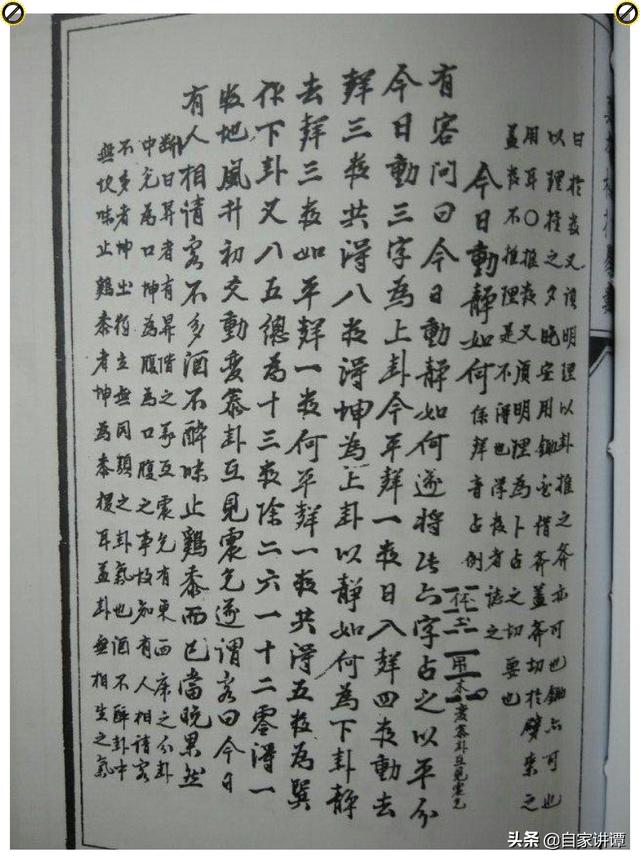 日於数又須明理以卦推之斧亦可也鋤亦可也
以理推之夕晚安用鋤必借斧蓋斧切於劈柴之
用耳○推数又須明理為卜占之切要也
蓋数不推理是不得也學数者誌之
今日動靜如何 係聲音占例 体土 用木 變泰卦互見震兌
有客問曰今日動靜如何遂將此六字占之以平分
今日動三字為上卦今平聲一数日入聲四数動去
聲三数共得八数得坤為上卦以靜如何為下卦靜
去聲三数如平聲一数何平聲一数共得五数為巽
作下卦又八五總為十三数除二六一十二零得一
数地風升初爻動變泰卦互見震兌遂謂客曰今日
有人相請客不多酒不醉味止鷄黍而已當晚果然
斷曰昇者有昇階之象互震兌有東西席之分卦
中兌為口坤為腹為口腹之事故知有人相請客
不多者坤土獨立無同類之卦氣也酒不醉卦中
無坎味止鷄黍者坤為黍稷耳蓋卦無相生之氣
头条 @自家讲谭